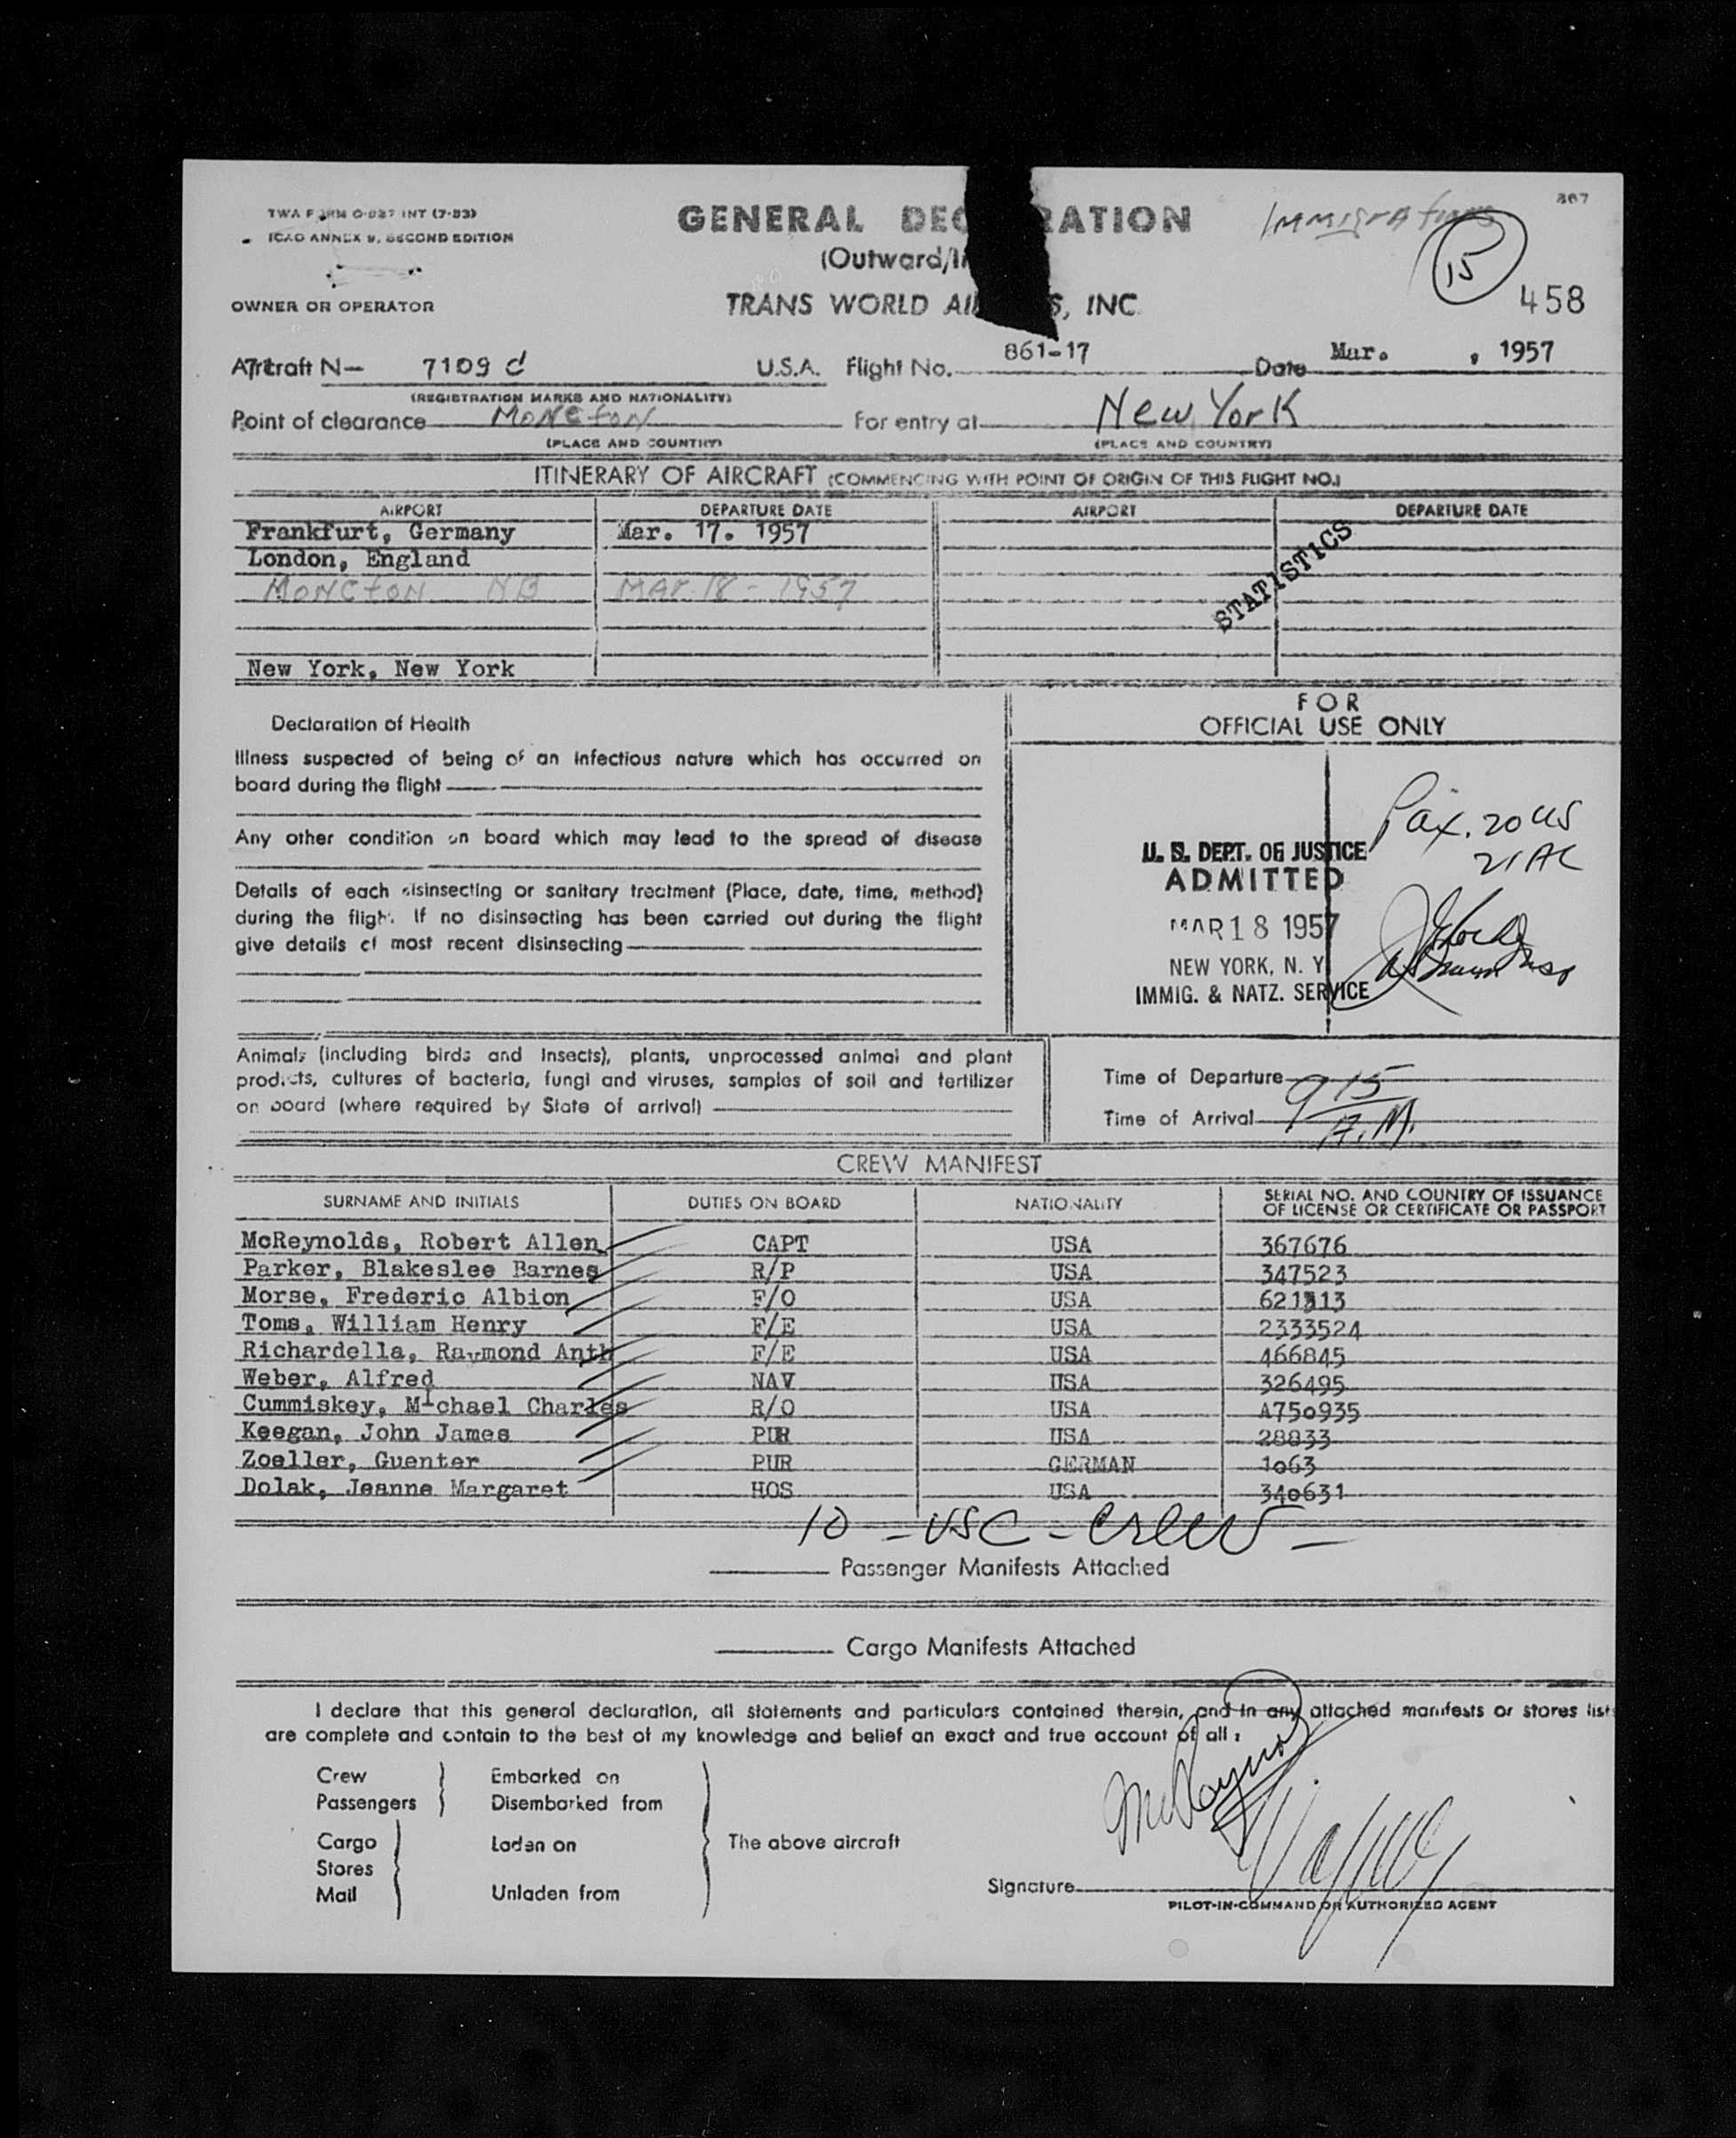 TWA FORM O-027 INT (7-53)
ICAO ANNEX 9, SECOND EDITION
GENERAL DEC RATION
Immigration
867
(Outward/I
15
458
OWNER OR OPERATOR
TRANS WORLD AI S, INC
Aircraft N— 7109 C U.S.A. Flight No. 861-17 Date Mar. , 1957
(REGISTRATION MARKS AND NATIONALITY)
Point of clearance Moncton For entry at New York
(PLACE AND COUNTRY) (PLACE AND COUNTRY)
ITINERARY OF AIRCRAFT (COMMENCING WITH POINT OF ORIGIN OF THIS FLIGHT NO.)
AIRPORT DEPARTURE DATE AIRPORT DEPARTURE DATE
Frankfurt, Germany Mar. 17. 1957
London, England
Moncton NB Mar 18 - 1957
STATISTICS
New York, New York
FOR
OFFICIAL USE ONLY
Declaration of Health
Illness suspected of being of an infectious nature which has occurred on
board during the flight
Any other condition on board which may lead to the spread of disease
Details of each disinsecting or sanitary treatment (Place, date, time, method)
during the flight. If no disinsecting has been carried out during the flight
give details of most recent disinsecting
Pax. 20 US
21 AC
U. S. DEPT. OF JUSTICE
ADMITTED
MAR 18 1957
NEW YORK, N. Y.
IMMIG. & NATZ. SERVICE
Animals (including birds and insects), plants, unprocessed animal and plant
products, cultures of bacteria, fungi and viruses, samples of soil and fertilizer
on board (where required by State of arrival)
Time of Departure
Time of Arrival 9 15 A.M.
CREW MANIFEST
SURNAME AND INITIALS DUTIES ON BOARD NATIONALITY SERIAL NO. AND COUNTRY OF ISSUANCE
OF LICENSE OR CERTIFICATE OR PASSPORT
McReynolds, Robert Allen CAPT USA 367676
Parker, Blakeslee Barnes R/P USA 347523
Morse, Frederic Albion F/O USA 621313
Toms, William Henry F/E USA 2333524
Richardella, Raymond Anth F/E USA 466845
Weber, Alfred NAV USA 326495
Cummiskey, Michael Charles R/O USA A750935
Keegan, John James PUR USA 28833
Zoeller, Guenter PUR GERMAN 1063
Dolak, Jeanne Margaret HOS USA 340631
10 - USC - Crew -
Passenger Manifests Attached
Cargo Manifests Attached
I declare that this general declaration, all statements and particulars contained therein, and in any attached manifests or stores lists
are complete and contain to the best of my knowledge and belief an exact and true account of all :
Crew Embarked on
Passengers Disembarked from
Cargo Laden on The above aircraft
Stores
Mail Unladen from
McReynolds
Signature
PILOT-IN-COMMAND OR AUTHORIZED AGENT